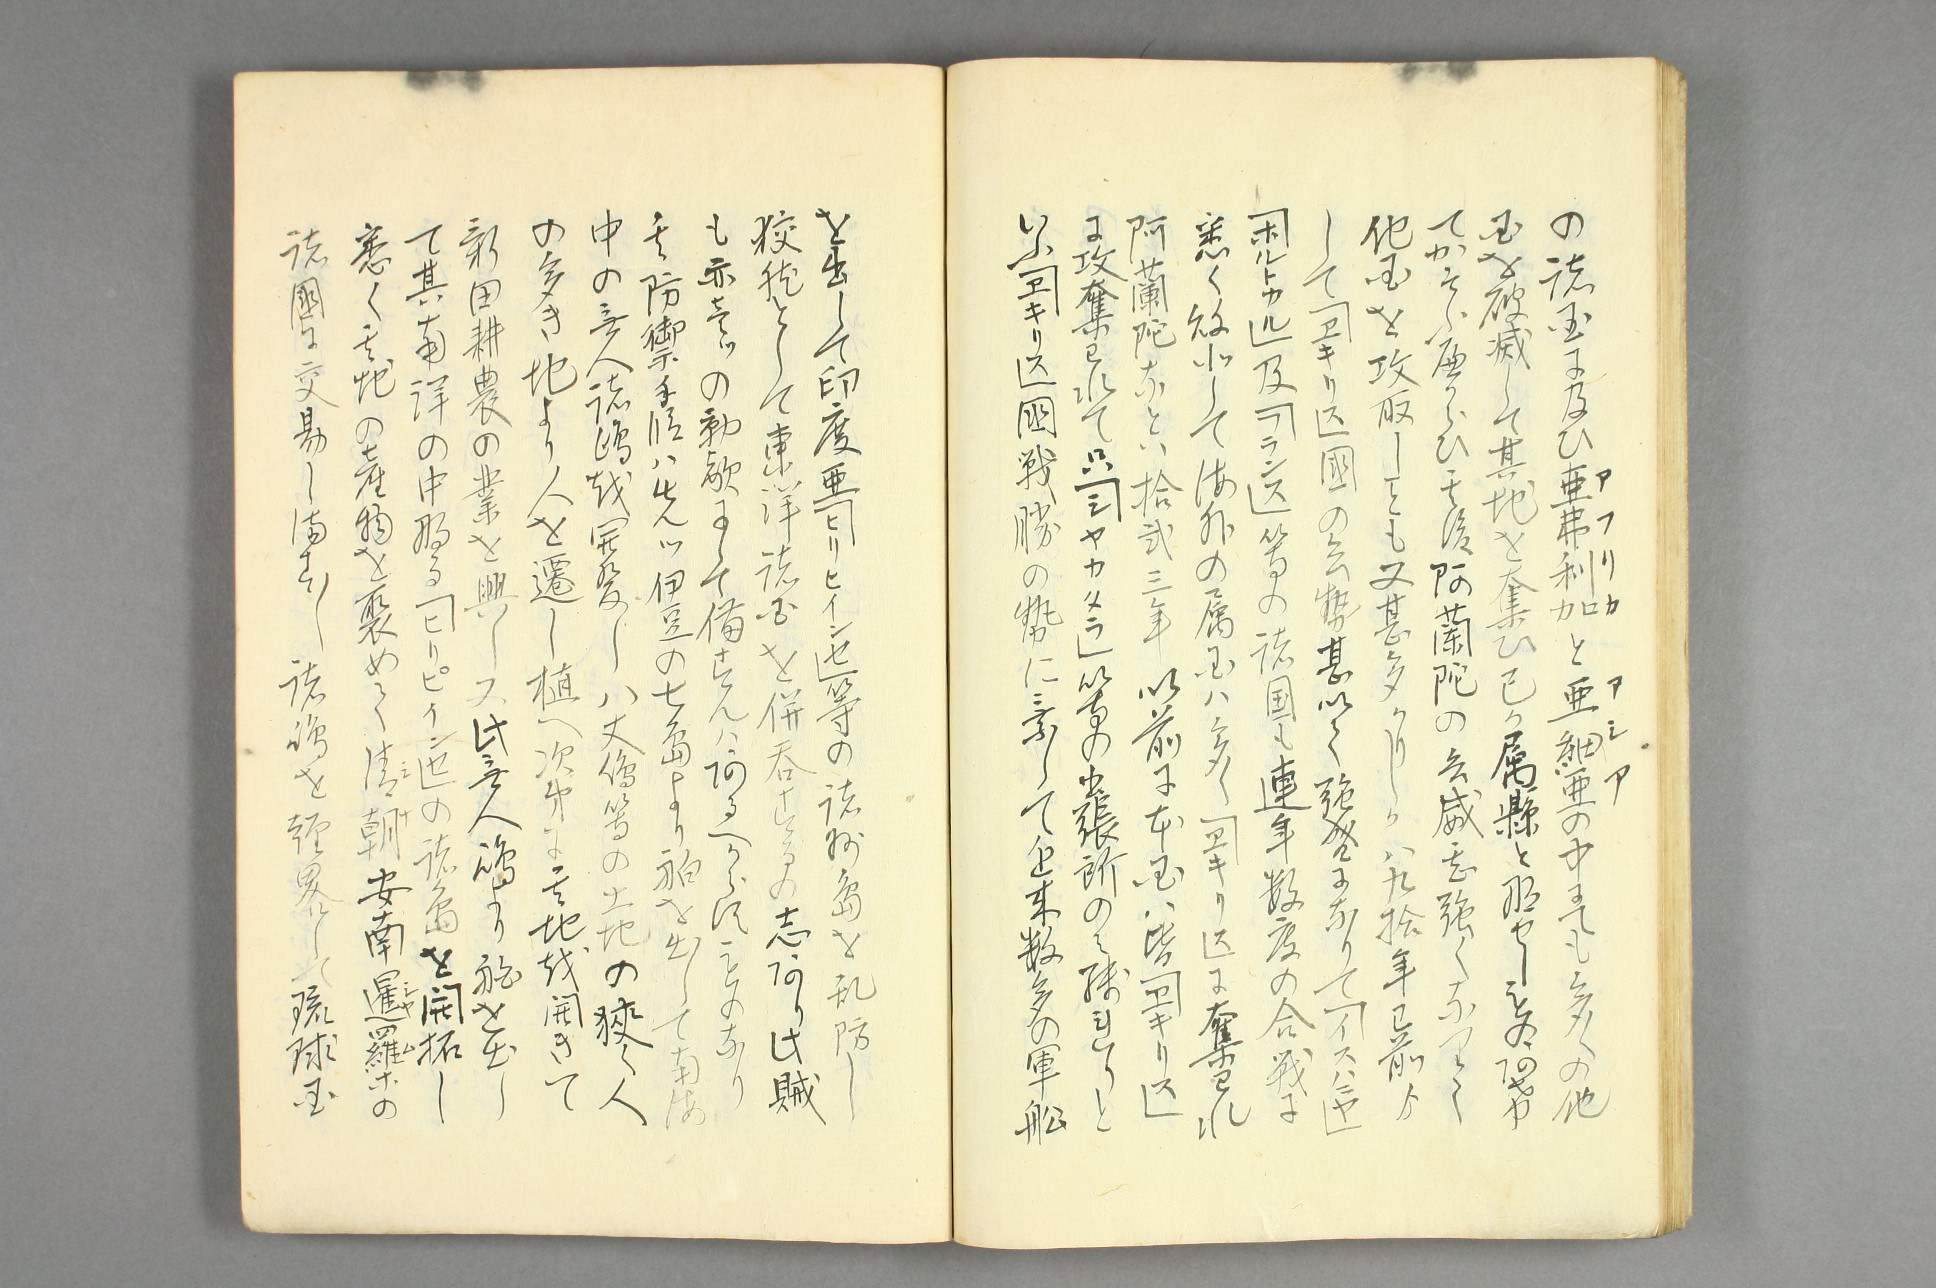 の諸国に及ひ亜弗利加と亜細亜の中にても多くの他
国を破滅して其地を奪ひ已か属縣と那せしことを
てかそふ其後阿蘭陀の兵威甚強くなりて
他国を攻取しことも又甚多かりしか八九拾年已前より
して「ヱキリス」國の兵勢甚以て強盛になりて「イスハニヤ」
「ホルトカル」及「フランス」等の諸国も連年数度の合戦に
悉く敗北して海外の属国ハ多く「ヱキリス」に奪はれ
阿蘭陀なとハ拾弐三年以前に本国ハ皆「ヱキリス」
に攻奪はれて只「シヤカタラ」等の出張所のミ残れりと
いふ「ヱキリス」國戦勝の勢に乗して近来数多の軍船
を出して印度亜「ヒリヒイン」等の諸州島を乱防し
東洋諸国を併呑するの志阿り此賊
も亦の勅敵にして備すんハ阿るへからさることなり
其防禦手段ハ先ツ伊豆の七島より船を出して南海
中の無人諸嶋越開發し八丈嶋等の土地の狭く人
の多き地より人を遷し植へ次第に其地越開きて
新田耕農の業を興し又此無人嶋より船を出し
て其南洋の中那る「ヒリピイン」の諸島を開拓し
悉く其地の産物を聚めて清朝安南暹羅等の
諸國に交易し諸嶋を経略して琉球国